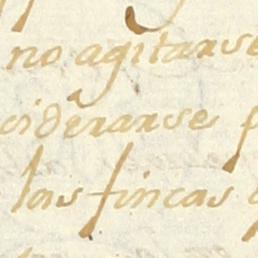 no agitarse
siderarse
las fincas